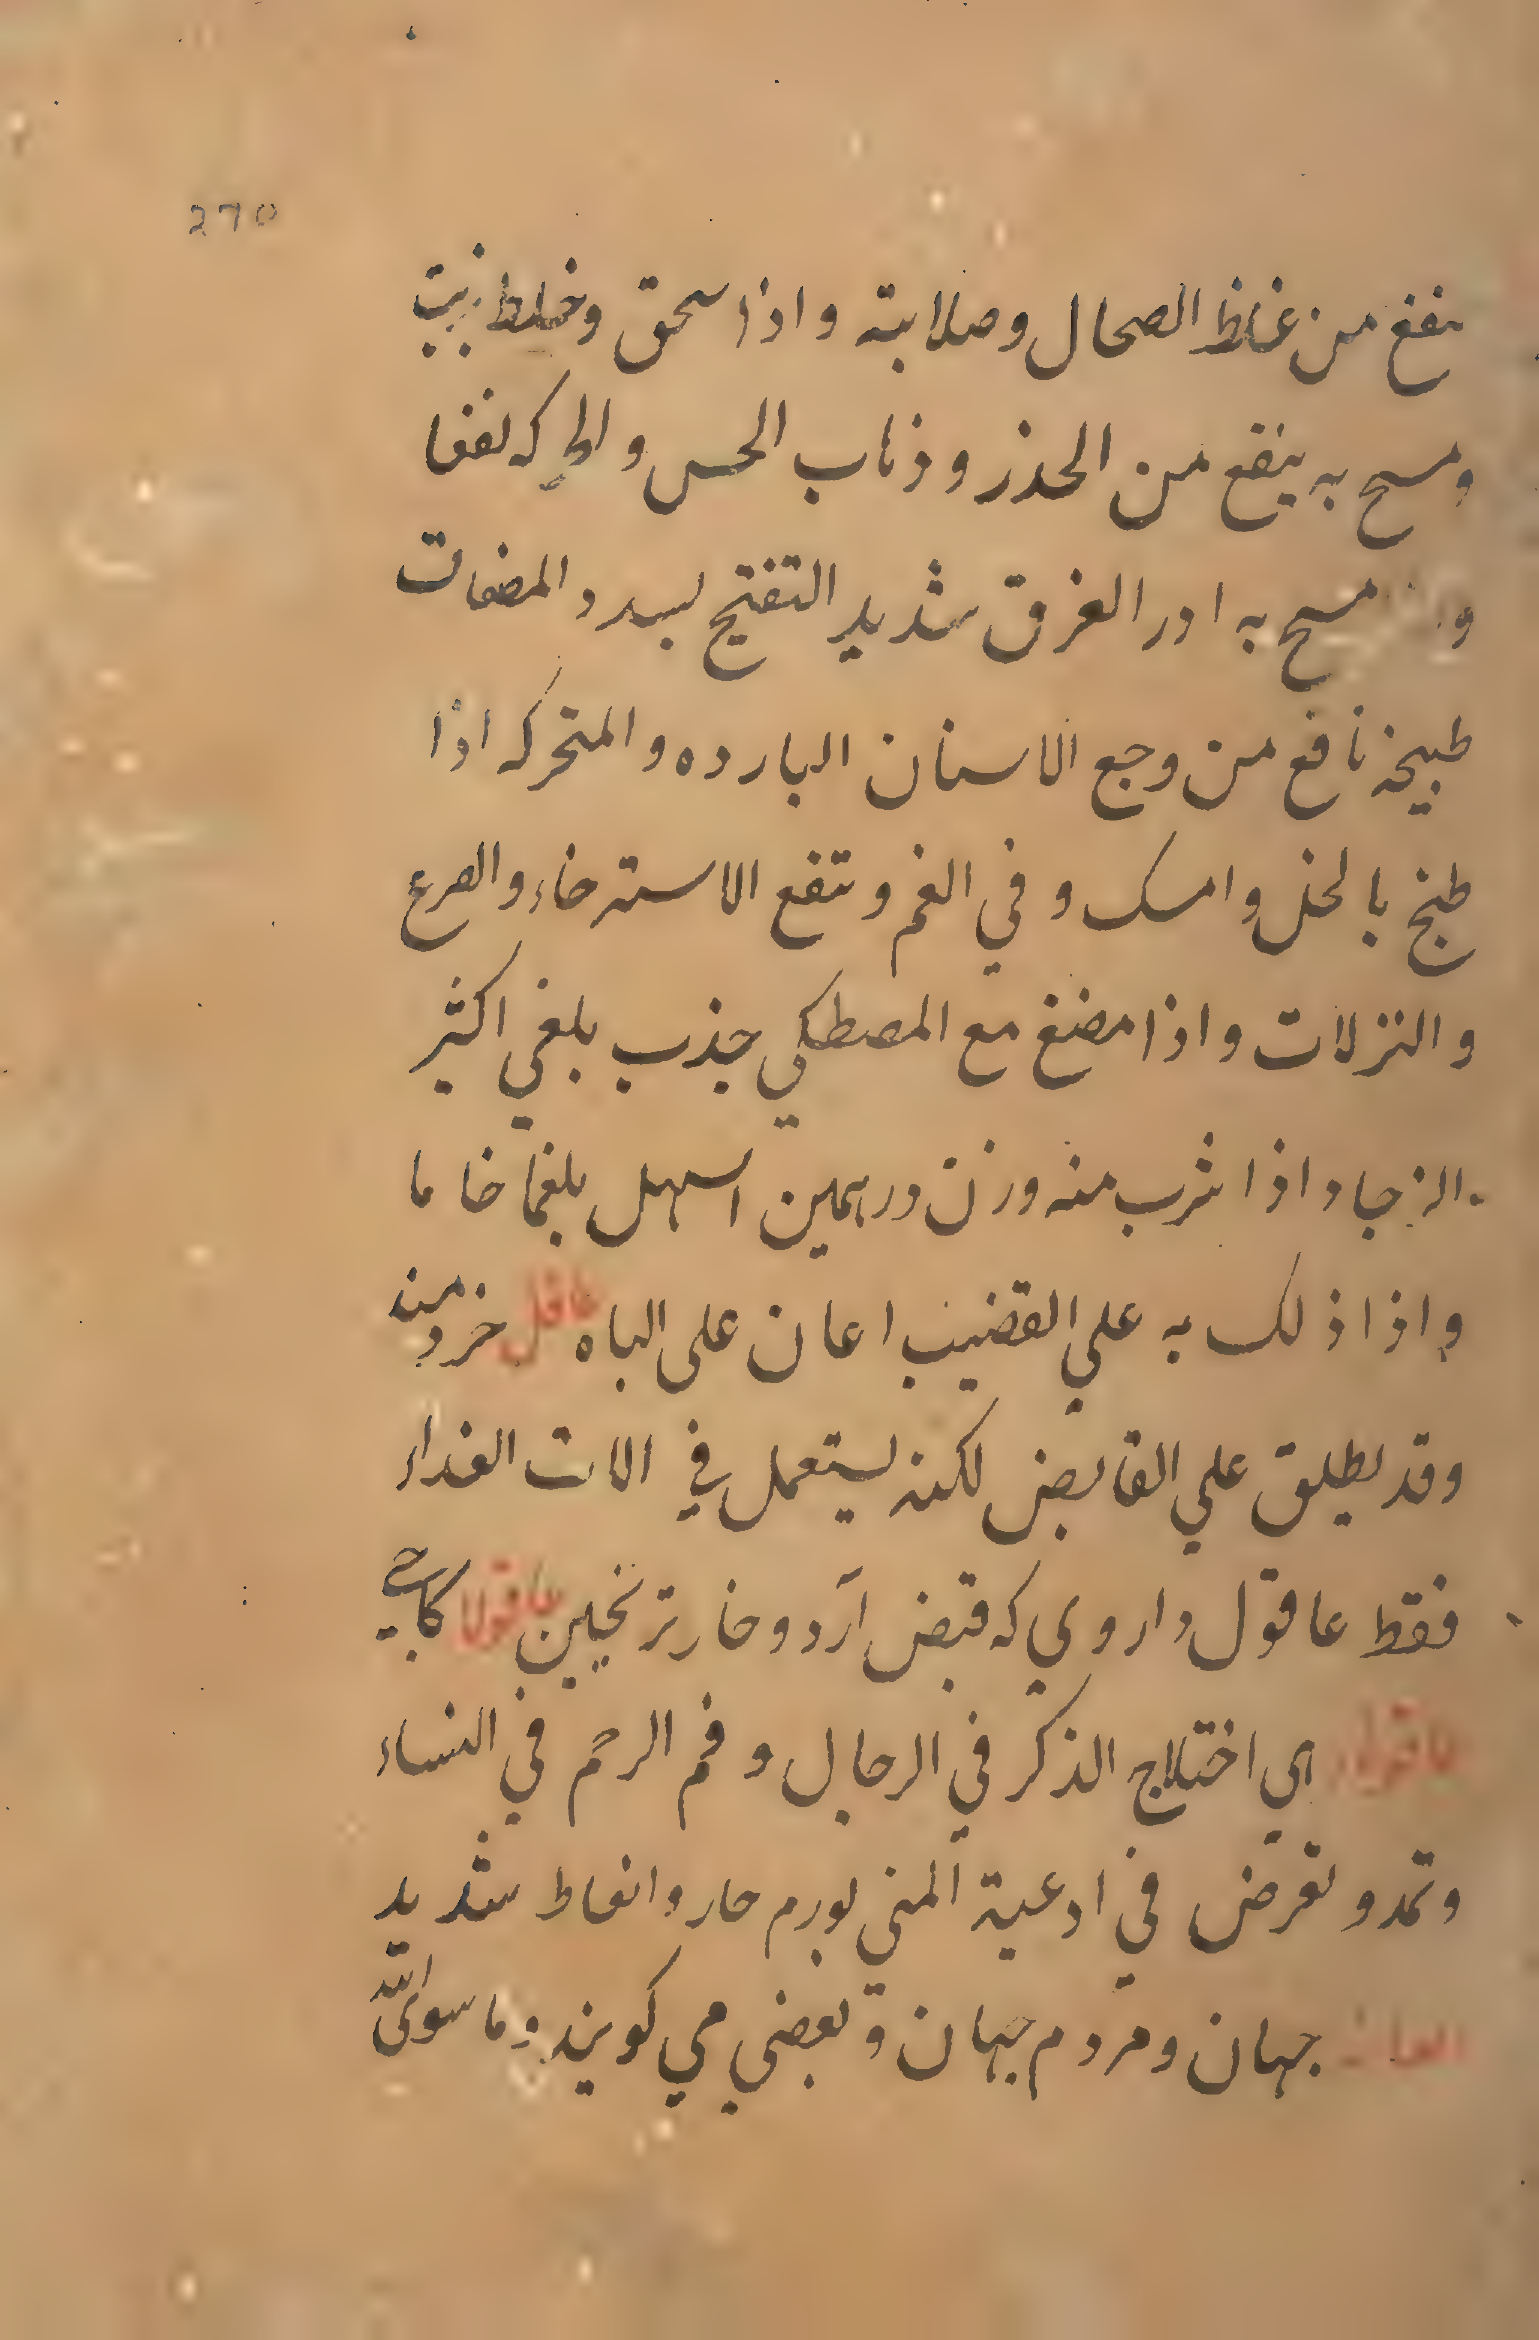 270
ینفع من غلظ الصحال وصلابته واذا سحق وخلط بزیت
ومسح به ینفع من الحذر وذهاب الحس والحرکه نفعا
مسح به ادر العرق شدید التفتیح لسدد المصفات
طبیخه نافع من وجع الاسنان البارده والمتحرکه اذا
طبخ بالخل وامسک و في الفم وتنفع الاسترخاء والصرع
والنزلات واذا مضغ مع المصطکي جذب بلغمي اکثیر
الزجاد اذا شرب منه وزن درهمین اسهل بلغما خاما
واذا ذلک به علي القضیب اعان علی الباه عاقل خردمند
وقد یطلق علي القابض لکنه یستعمل في الات الغذاء
فقط عاقول داروي که قبض آرد وخار ترنجبین عاقولا کاسني
اي اختلاج الذکر في الرجال و فم الرحم في النساء
وتمدد تعرض في ادعیة المني لورم حار وانعاظ شدید
جهان ومردم جهان و بعضي مي کویند وما سوی الله